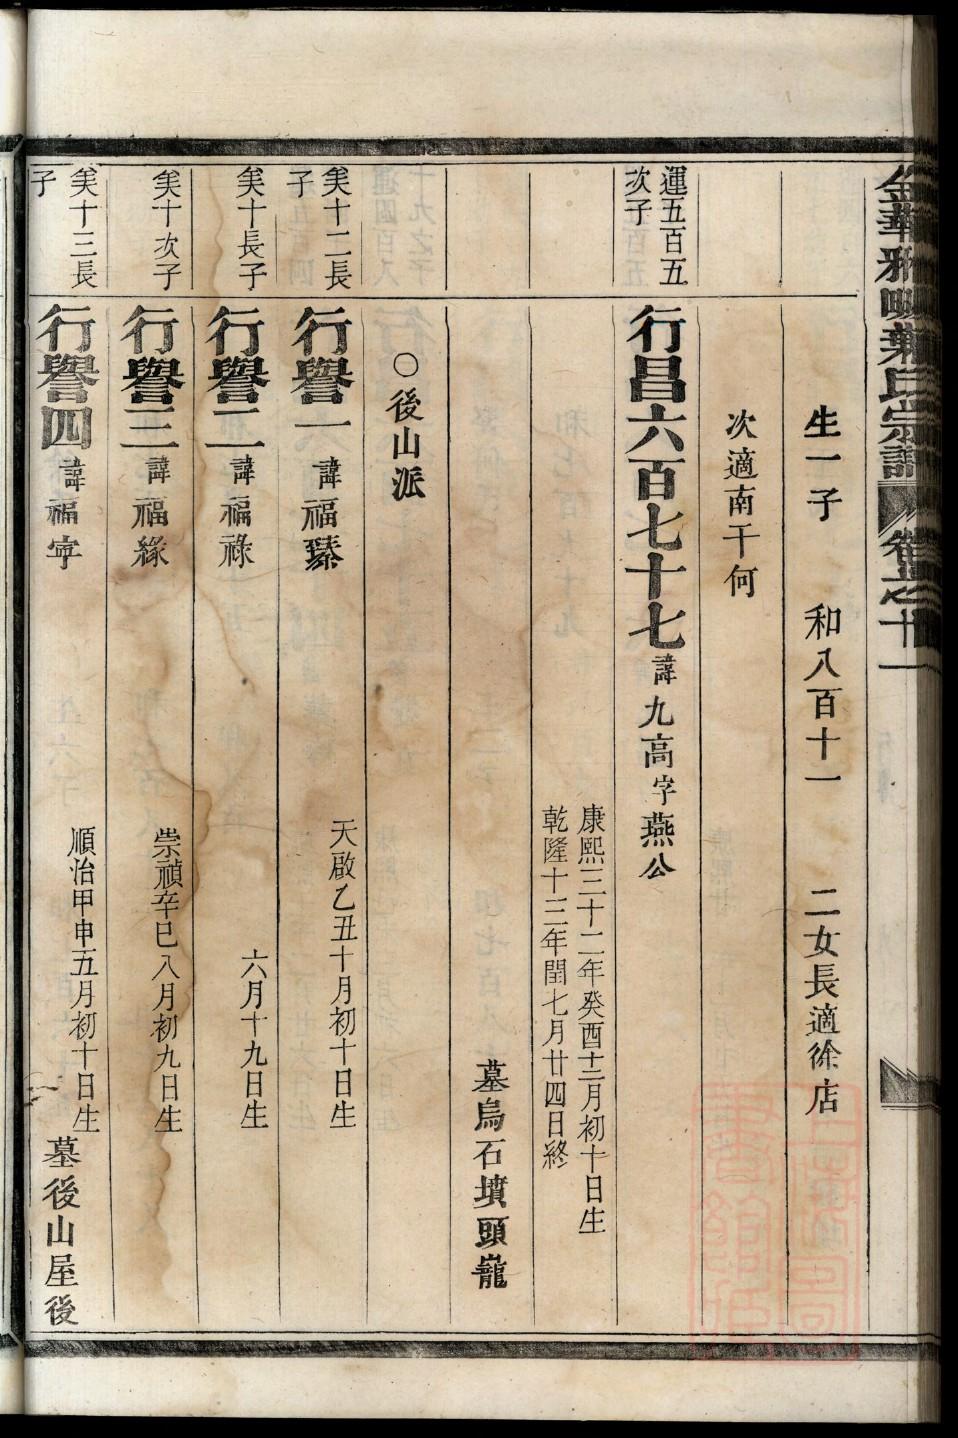 金華雅畈葉氏宗譜 卷之十一
生一子 和八百十一 二女長適徐店
次適南干何
運五百五
次子
行昌六百七十七 諱九高字燕公
康熙三十二年癸酉十二月初十日生
乾隆十三年閏七月廿四日終
墓烏石墳頭巃
○後山派
美十二長
子
行譽一 諱福臻 天啟乙丑十月初十日生
美十長子
行譽二 諱福祿 六月十九日生
美十次子
行譽三 諱福緣 崇禎辛巳八月初九日生
美十三長
子
行譽四 諱福字 順治甲申五月初十日生 墓後山屋後